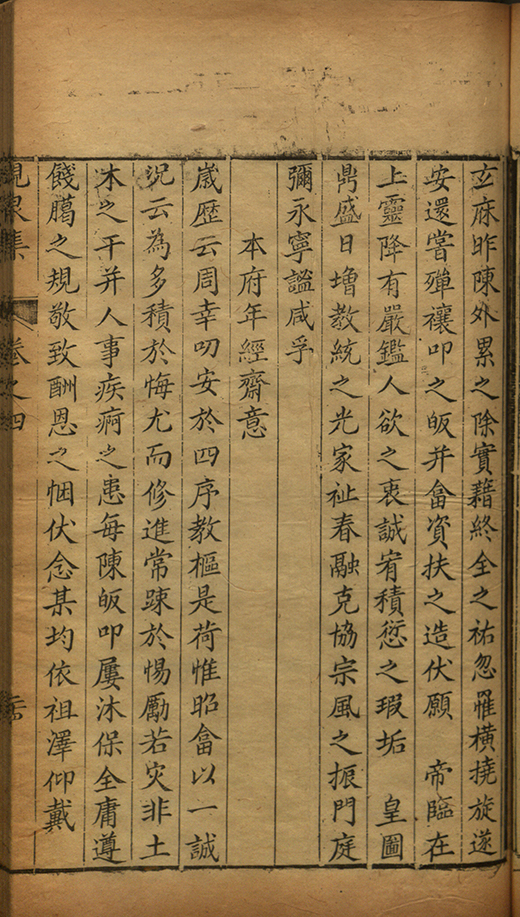 玄庥昨陳外累之除實藉終全之祐忽罹橫撓旋遂
安還嘗殫禳叩之皈并畣資扶之造伏願　帝臨在
上靈降有嚴鑑人欲之衷誠宥積愆之瑕垢　皇圖
鼎盛日增教統之光家祉春融克協宗風之振門庭
彌永寧謐咸孚
本府年經齋意
歲歷云周幸叨安於四序教樞是荷惟昭畣以一誠
況云為多積於悔尤而修進常踈於惕勵若灾非土
木之干并人事疾痾之患每陳皈叩屢沐保全庸遵
餞臈之規敬致酬恩之悃伏念某均依祖澤仰戴
峴泉集　卷之四